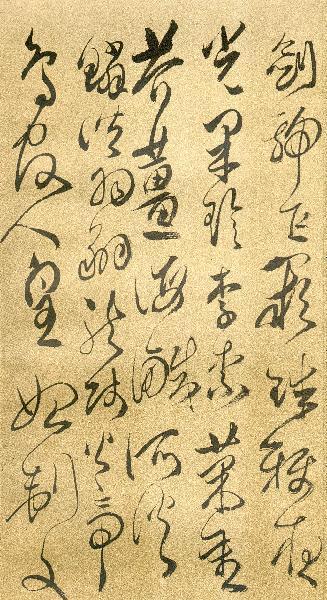 劍號巨闕珠稱夜
光果珍李柰菜重
芥薑海鹹河淡
鱗潛羽翔龍師火帝
鳥官人皇始制文